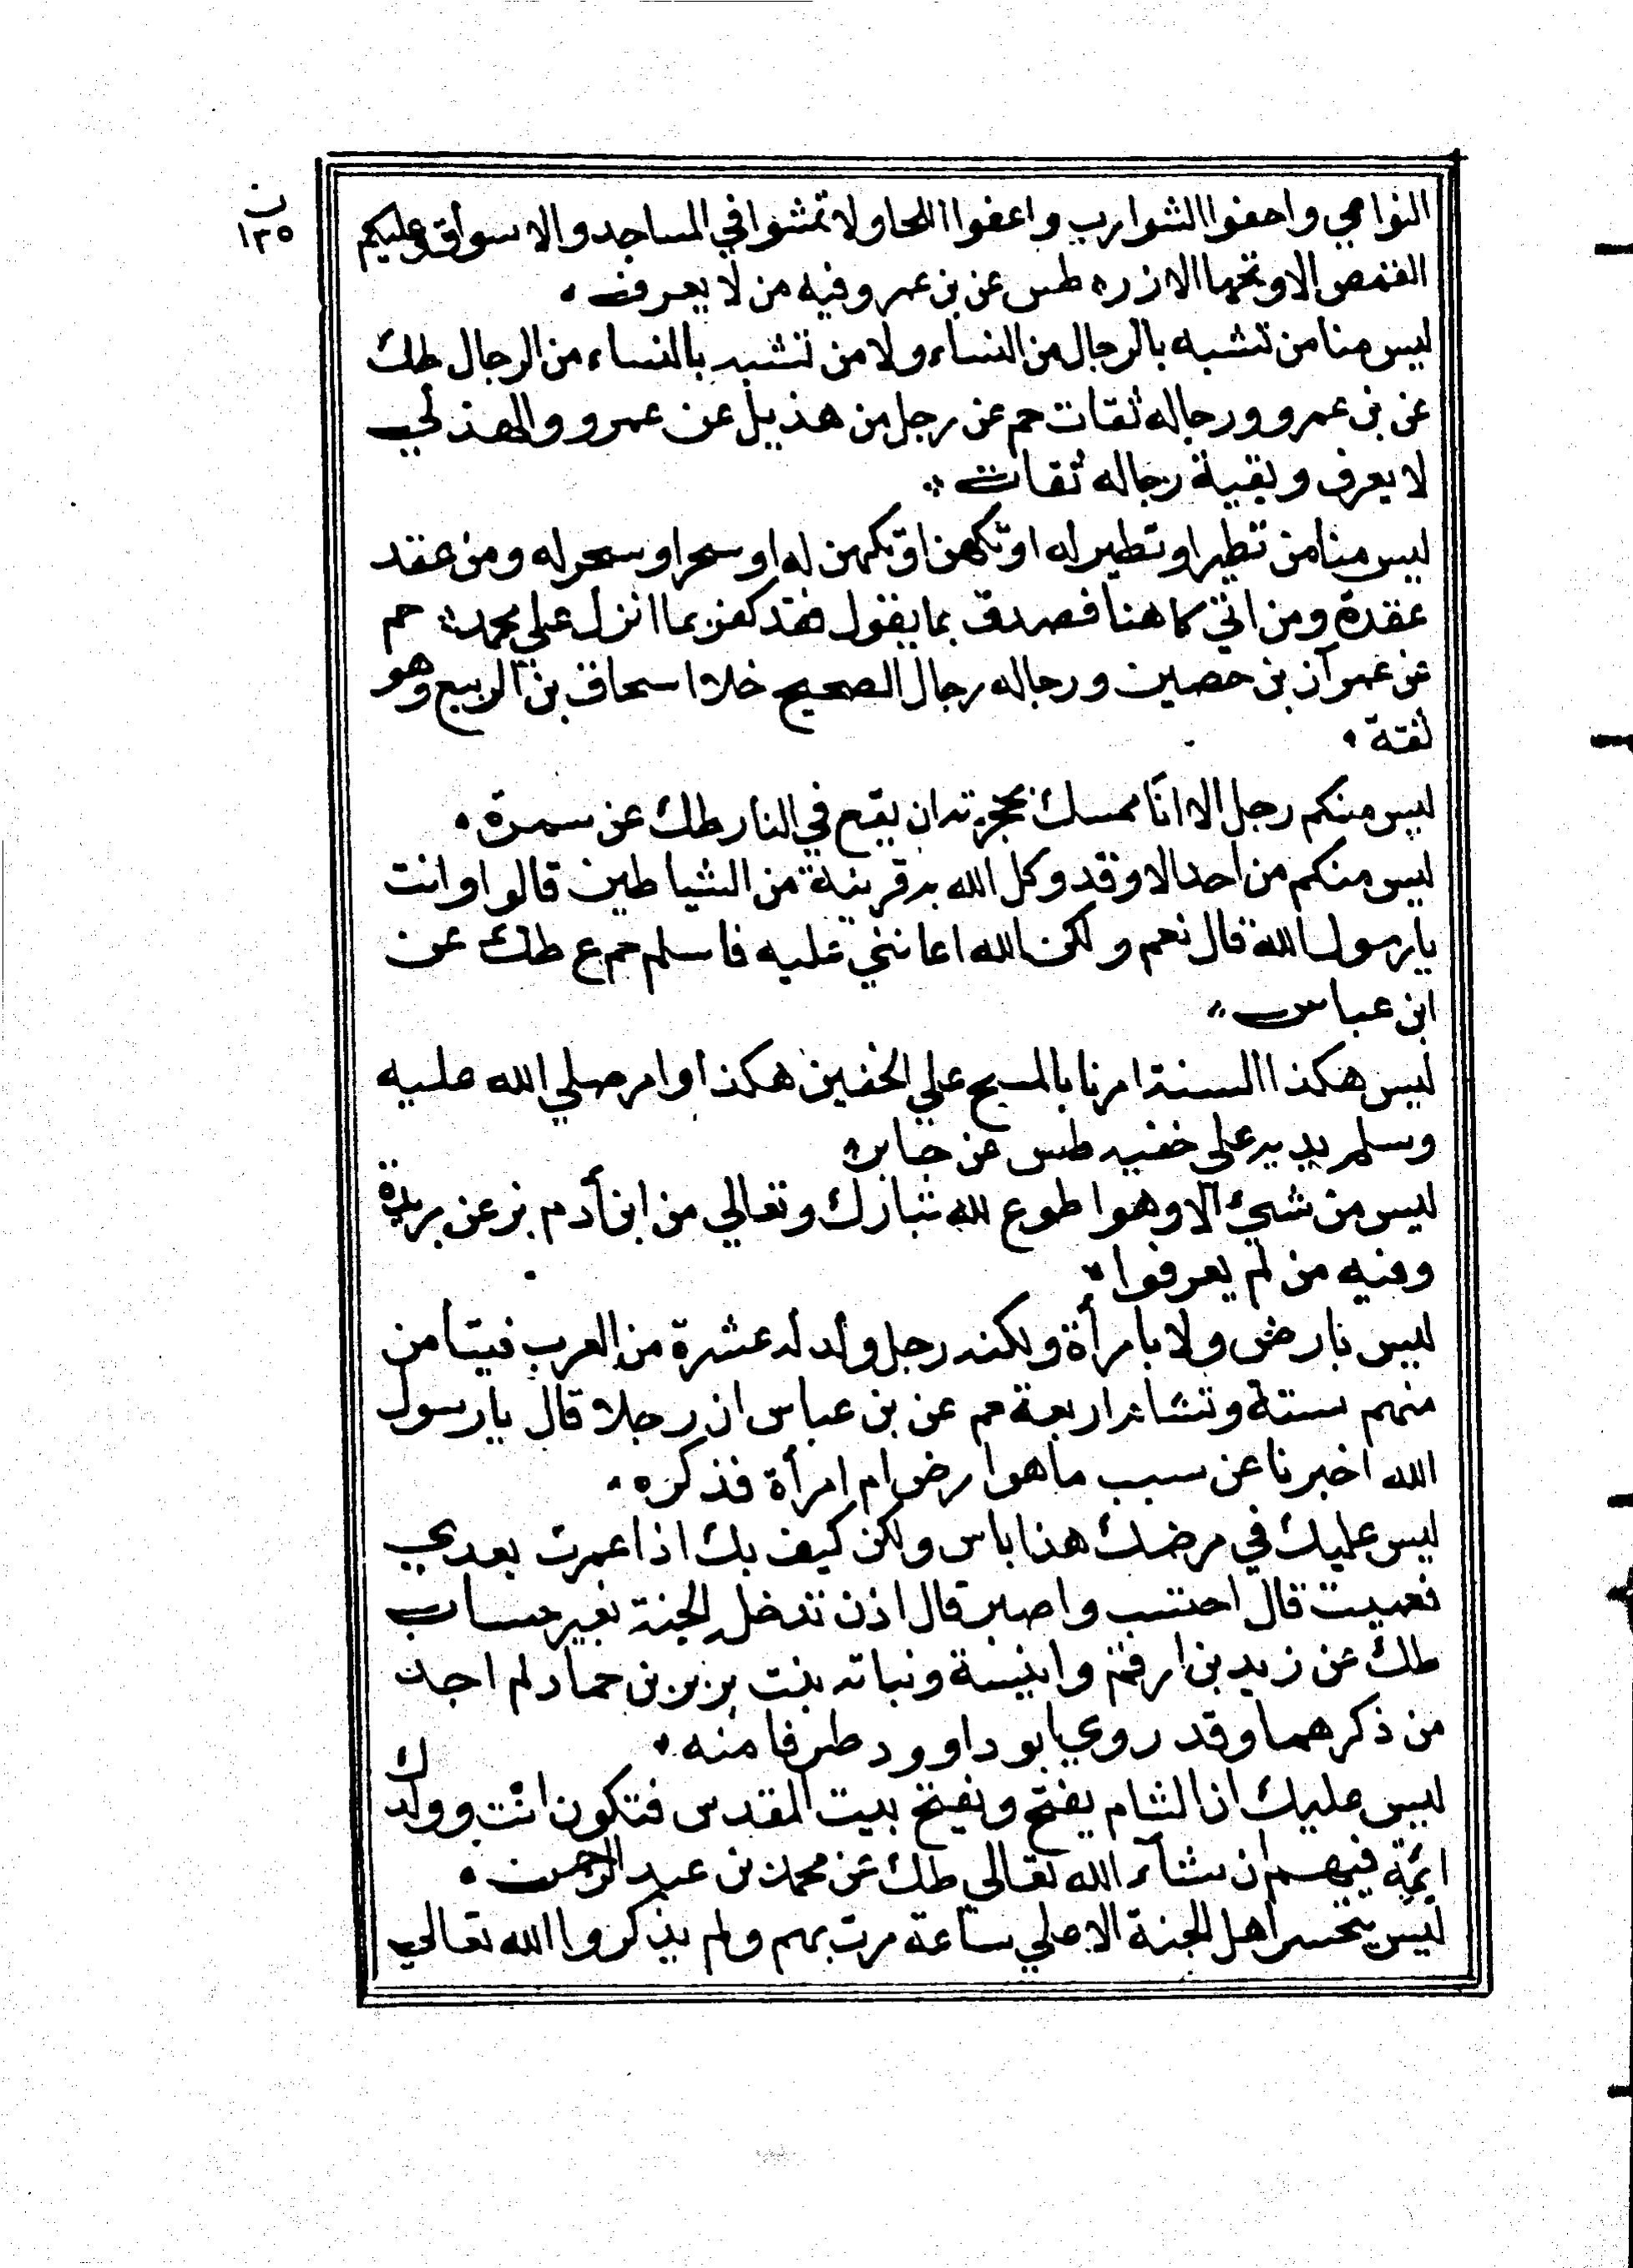 ن
١٣٥
النواصي واحفوا الشوارب واعفوا اللحا ولا تمشوا في المساجد والاسواق وعليكم
القمص الا وتحتها الازره طس عن بن عمرو فيه من لا يعرف
ليس منا من تشبه بالرجال من النساء ولا من تشبه بالنساء من الرجال طك
عن بن عمرو ورجاله ثقات حم عن رجل من هذيل عن عمرو والهذلي
لا يعرف وبقية رجاله ثقات
ليس منا من تطير او تطير له او تكهن او تكهن له او سحر او سحر له ومن عقد
عقدة ومن اتي كاهنا فصدق بما يقول فقد كفر بما انزل علي محمد حم
عن عمرآن بن حصين ورجاله رجال الصحيح خلا اسحاق بن الربيع وهو
ثقة
ليس منكم رجل الا انا ممسك بحجزته ان يقع في النار طك عن سمرة
ليس منكم من احد الا وقد وكل الله به قرينة من الشياطين قالوا وانت
يا رسول الله قال نعم ولكن الله اعانني عليه فاسلم حم ع طك عن
ابن عباس
ليس هكذا السنة امرنا بالمسح علي الخفين هكذا وامر صلي الله عليه
وسلم يديه علي خفيه طس عن جابر
ليس من شئ الا وهو اطوع لله تبارك وتعالي من ابن أدم بز عن بريدة
وفيه من لم يعرفوا
ليس بارض ولا بامرأة ولكنه رجل ولد له عشرة من العرب فيتامن
منهم ستة وتشائم اربعة حم عن بن عباس ان رجلا قال يا رسول
الله اخبرنا عن سبب ما هو ارض ام امرأة فذكره
ليس عليك في مرضك هذا باس ولكن كيف بك اذا عمرت بعدي
فعميت قال احتسب واصبر قال اذن تدخل الجنة بغير حساب
طك عن زيد بن ارقم وانيسة ونباته بنت برير بن حماد لم اجد
من ذكرهما وقد روي ابو داوود طرفا منه
ليس عليك ان الشام يفتح ويفتح بيت المقدس فتكون انت وولدك
ائمة فيهم ان شآء الله تعالي طك عن محمد بن عبد الرحمن
ليس يتحسر اهل الجنة الا علي ساعة مرت بهم ولم يذكروا الله تعالي